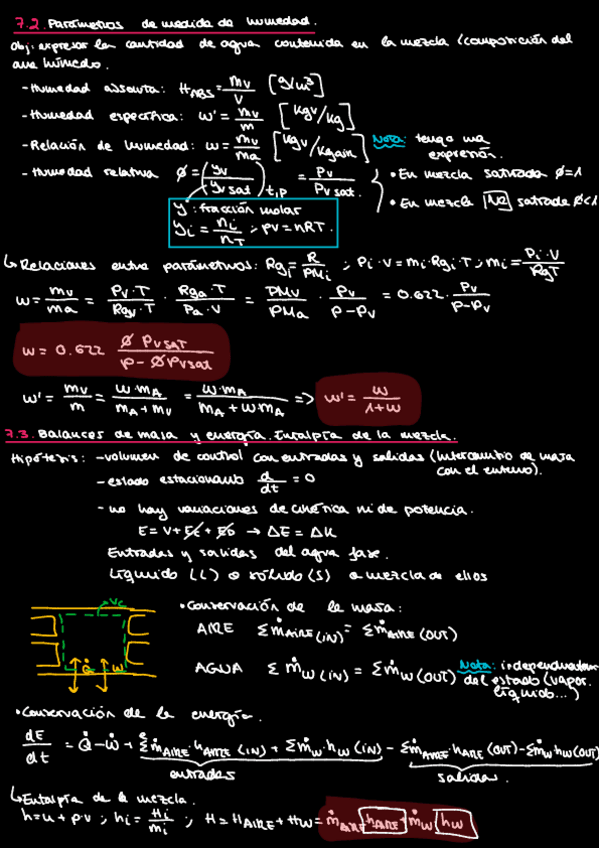 7.2. Parámetros de medida de humedad.
Obj: expresar la cantidad de agua contenida en la mezcla (composición del
aire húmedo.
- Humedad absoluta: H_ABS = mv/V [g/m³]
- Humedad específica: w' = mv/m [kgv/kg]
- Relación de humedad: w = mv/ma [kgv/kgair] Nota: tengo una expresión.
- Humedad relativa ø = (yv/yv sat)t,p = Pv/Pv sat.
• En mezcla saturada ø=1
• En mezcla NO saturada ø<1
y: fracción molar
yi = ni/nT ; pv = nRT.
↳ Relaciones entre parámetros: Rgi = R/PMi ; Pi·V = mi·Rgi·T ; mi = Pi·V/RgT
w = mv/ma = Pv·T/Rgv·T · Rga·T/Pa·V = PMv/PMa · Pv/P-Pv = 0.622 · Pv/P-Pv
w = 0.622 ø Pvsat/P - øPvsat
w' = mv/m = w·mA/mA+mv = w·mA/mA+w·mA => w' = w/1+w
7.3. Balances de masa y energía. Entalpía de la mezcla.
Hipótesis: - volumen de control con entradas y salidas (Intercambio de masa
con el entorno).
- estado estacionario d/dt = 0
- no hay variaciones de cinética ni de potencia.
E = V + Ec + Ep → ΔE = ΔK
Entradas y salidas del agua fase.
Líquido (L) o sólido (S) o mezcla de ellos
VC
Q̇ W
• Conservación de la masa:
AIRE Σ ṁAIRE (IN) = Σ ṁAIRE (OUT)
AGUA Σ ṁw (IN) = Σ ṁw (OUT) Nota:
del estado (vapor.
líquido...)
• Conservación de la energía.
dE/dt = Q̇ - ẇ + Σ ṁAIRE·hAIRE (IN) + Σ ṁw·hw (IN) - Σ ṁAIRE·hAIRE (OUT) - Σ ṁw hw (OUT)
entradas salida.
↳ Entalpía de la mezcla.
h = u + pv ; hi = Hi/mi ; H = HAIRE + Hw = ṁAIRE hAIRE + ṁw hw